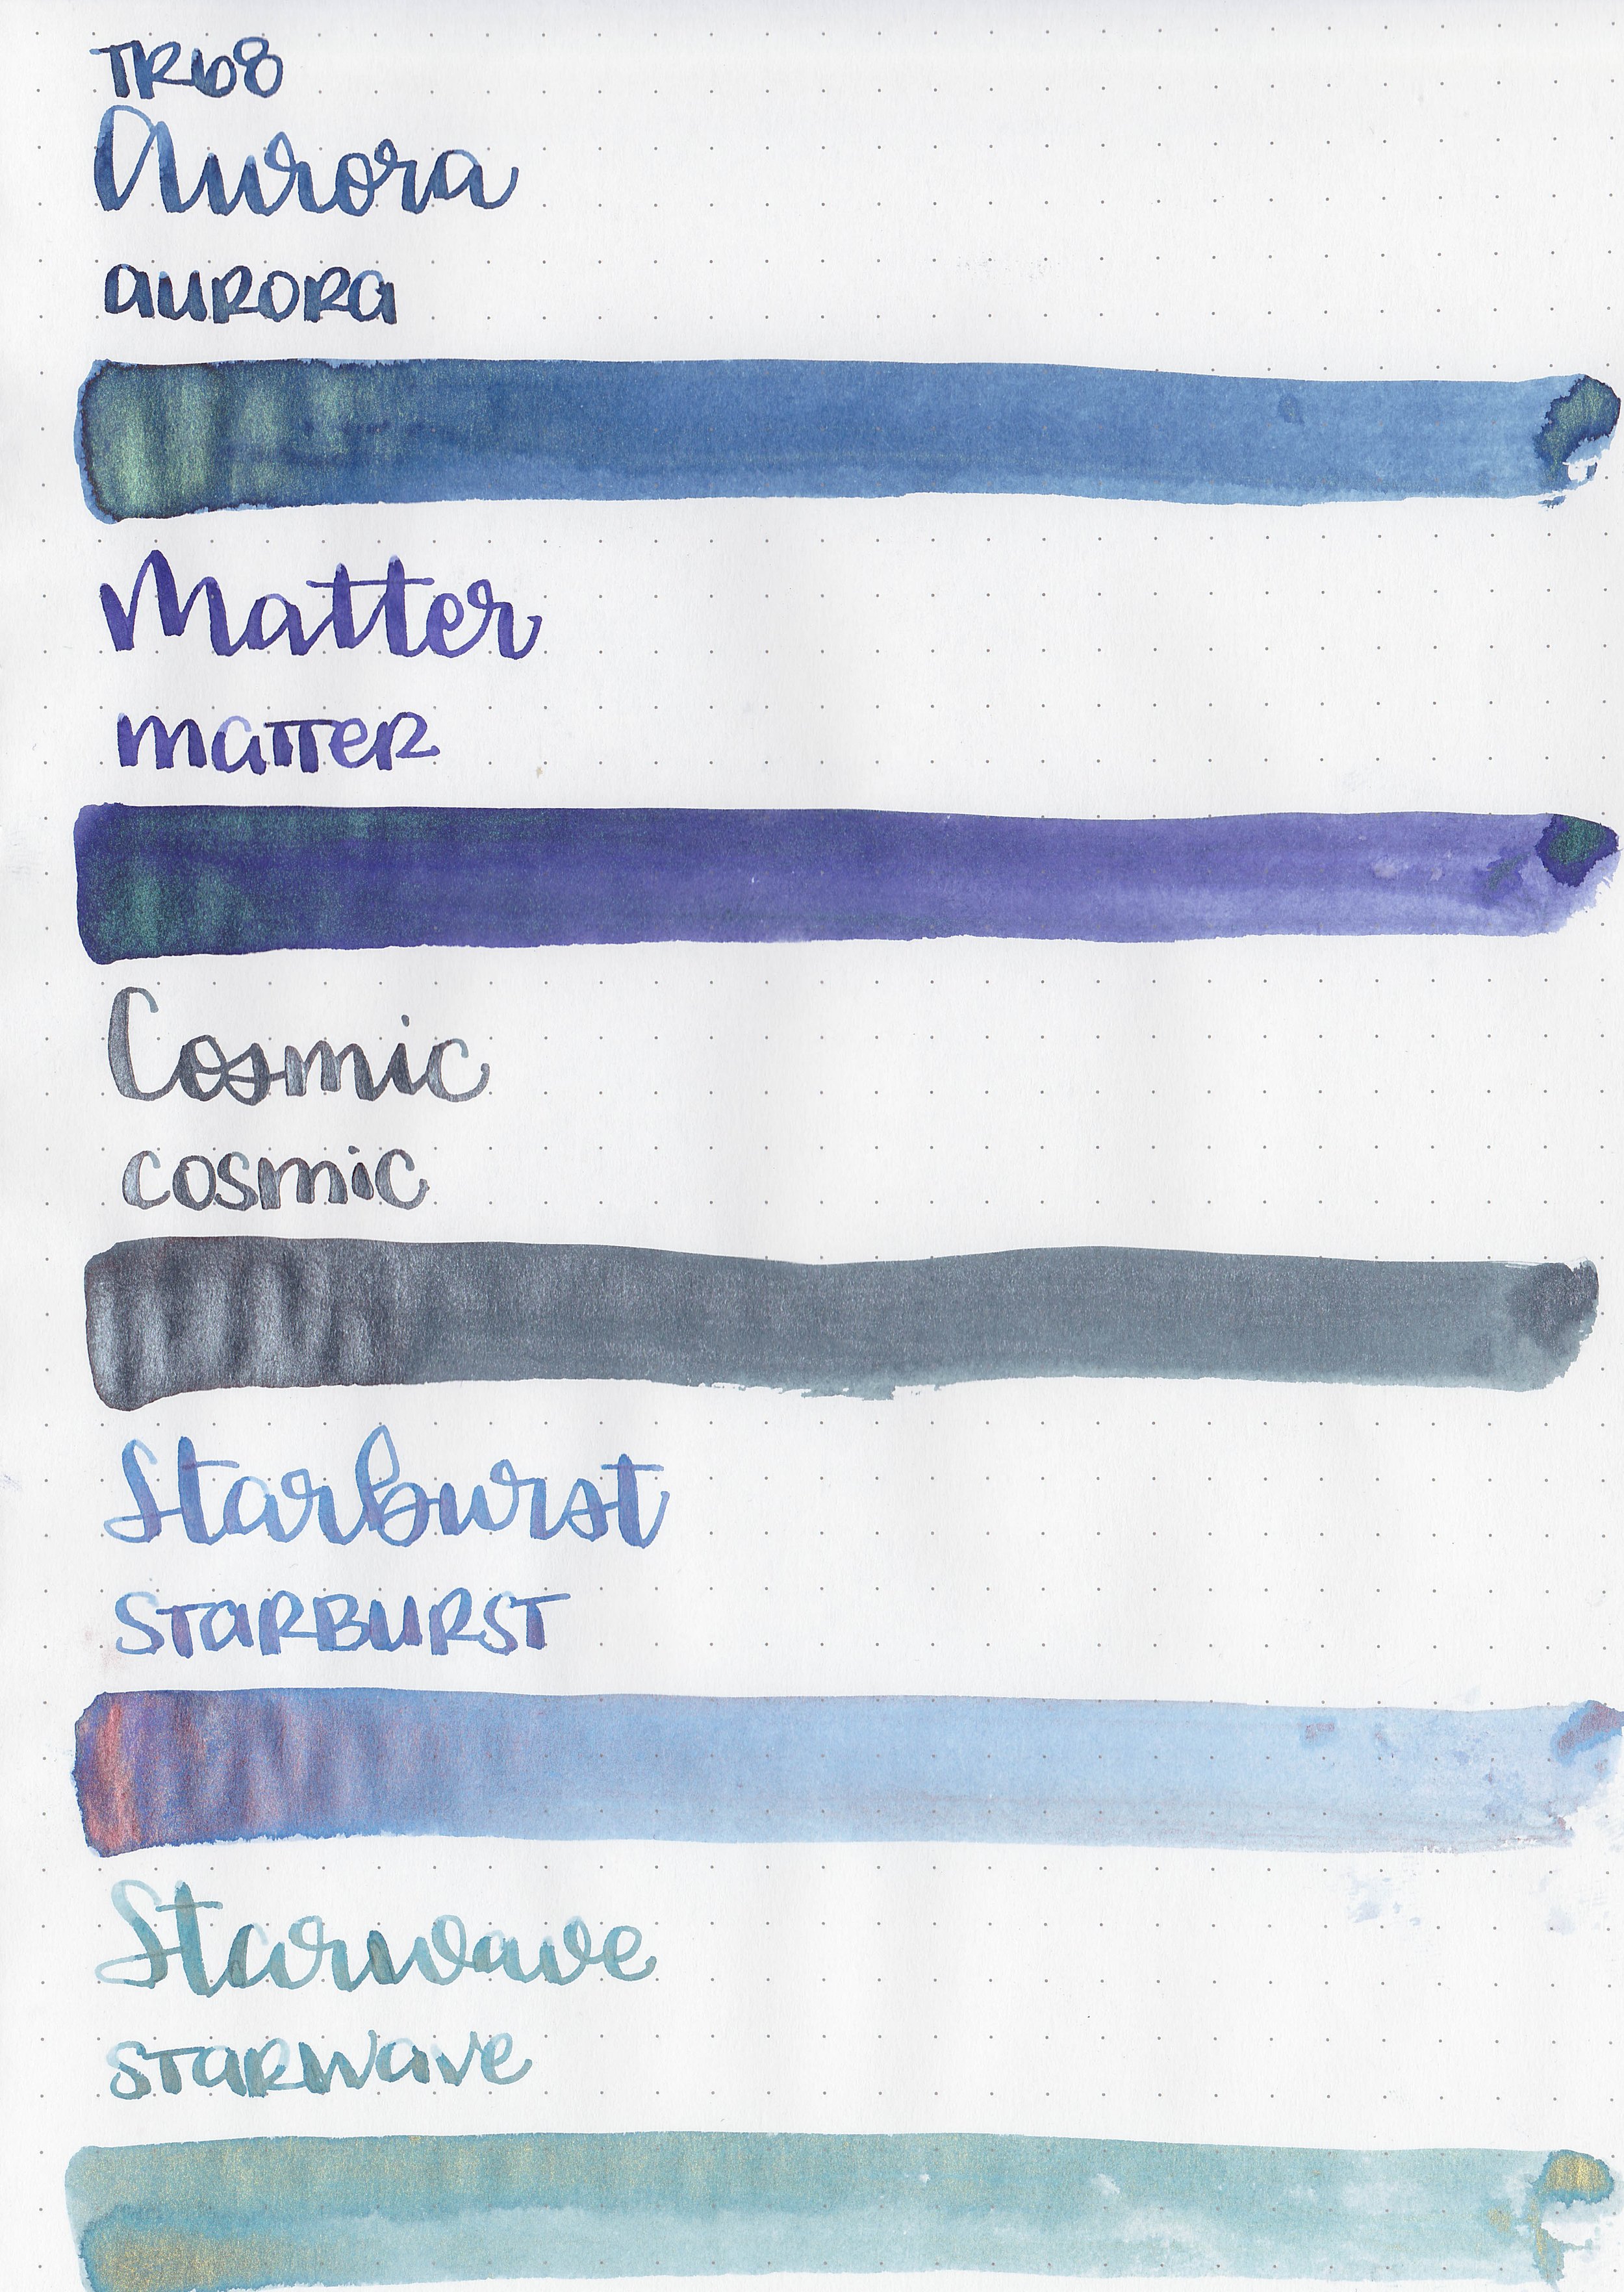 TR68
Aurora
aurora
Matter
matter
Cosmic
cosmic
Starburst
STARBURST
Starwave
starwave